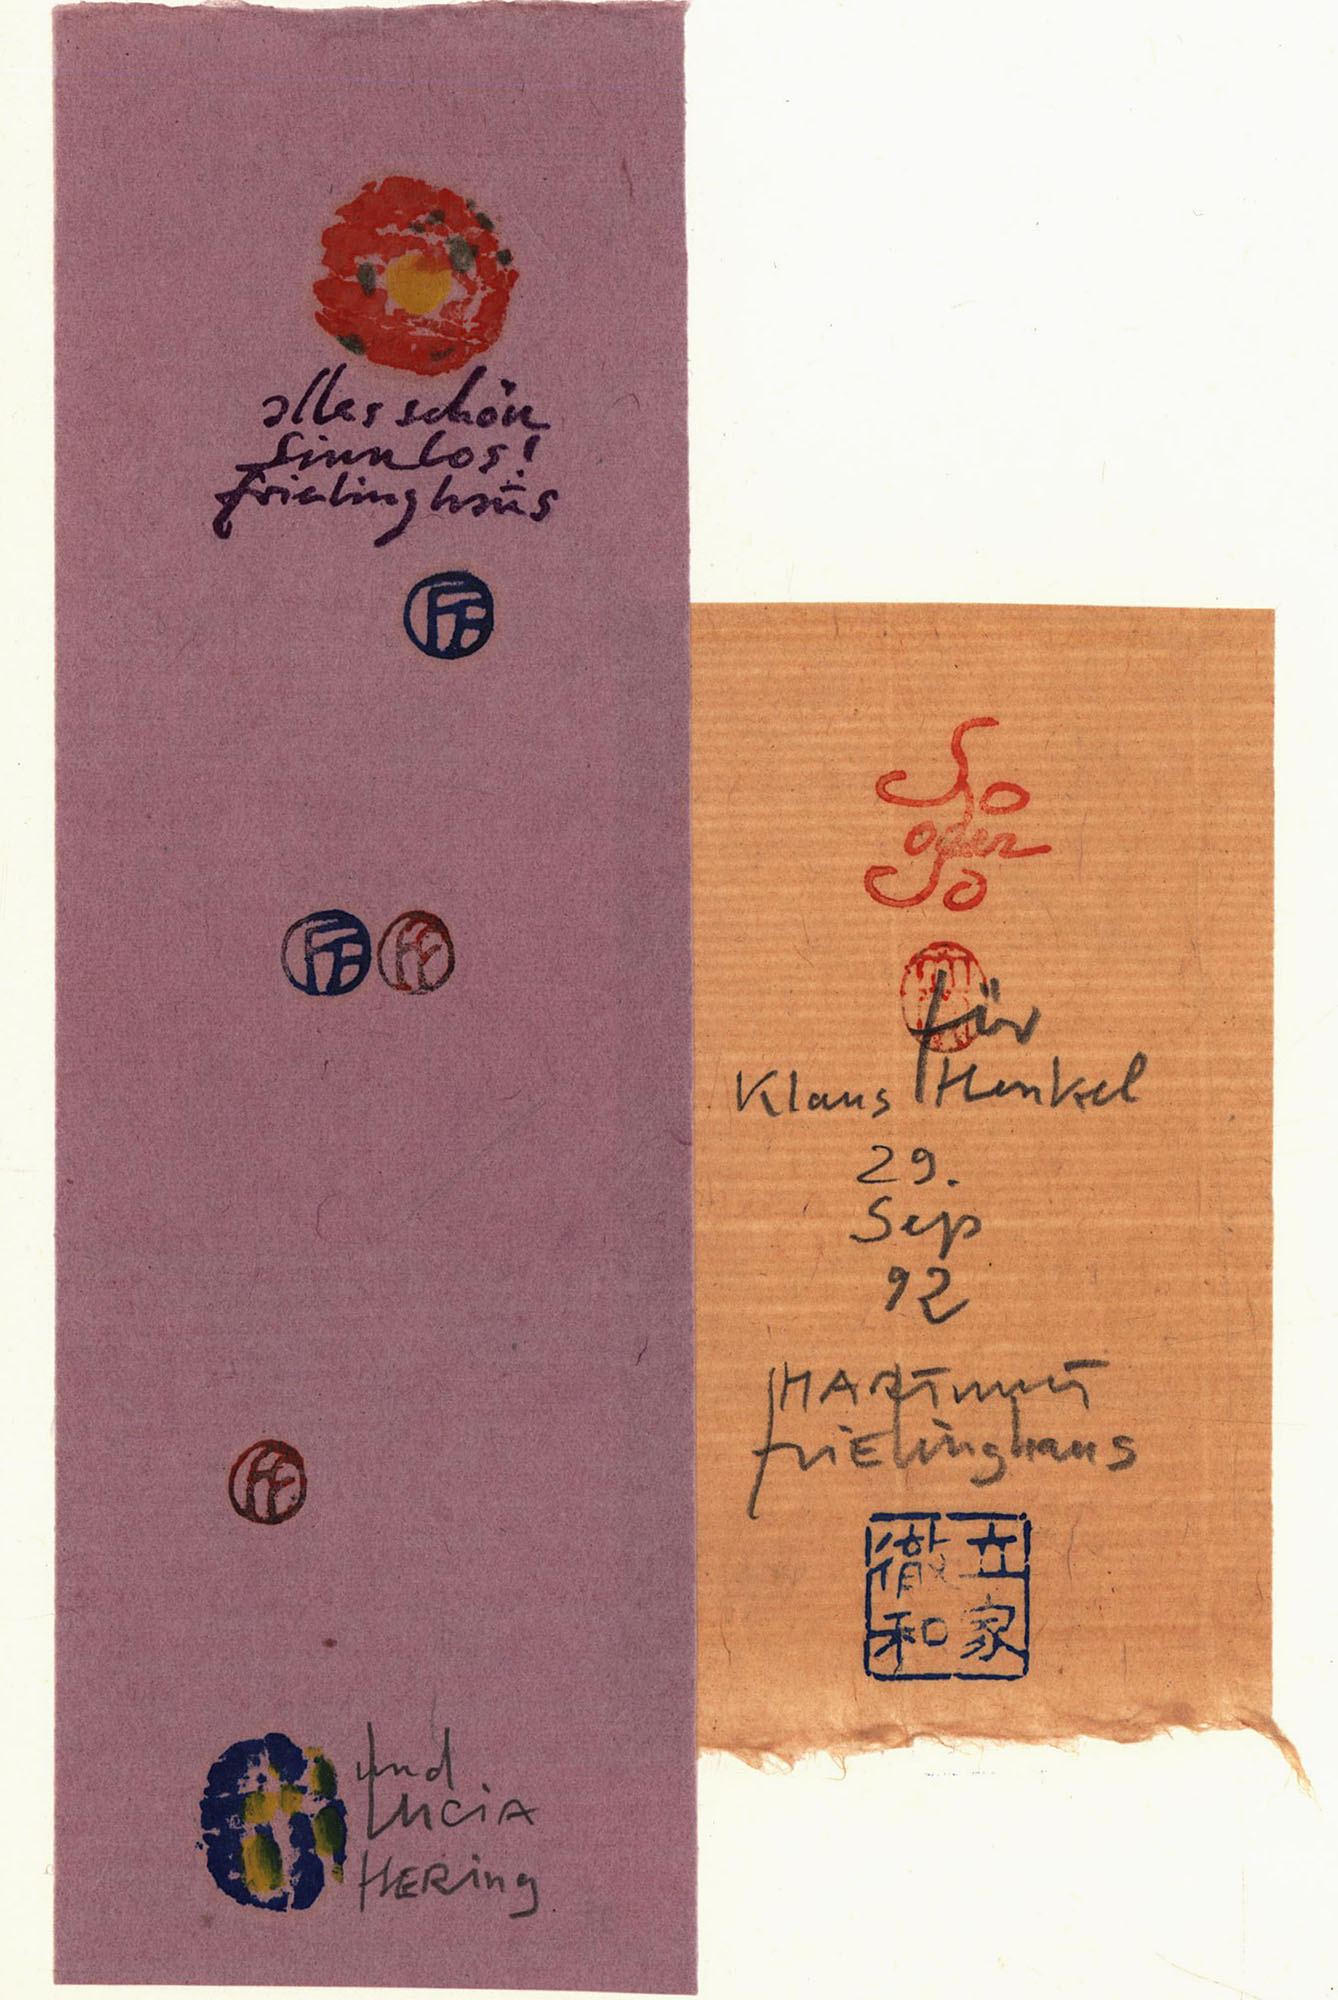 alles schön
sinnlos!
frielinghaus
und
Lucia
HERing
So
oder
So
für
Klaus Henkel
29.
Sep
92
HARTmuT
friElinghaus
徹 立
和 家